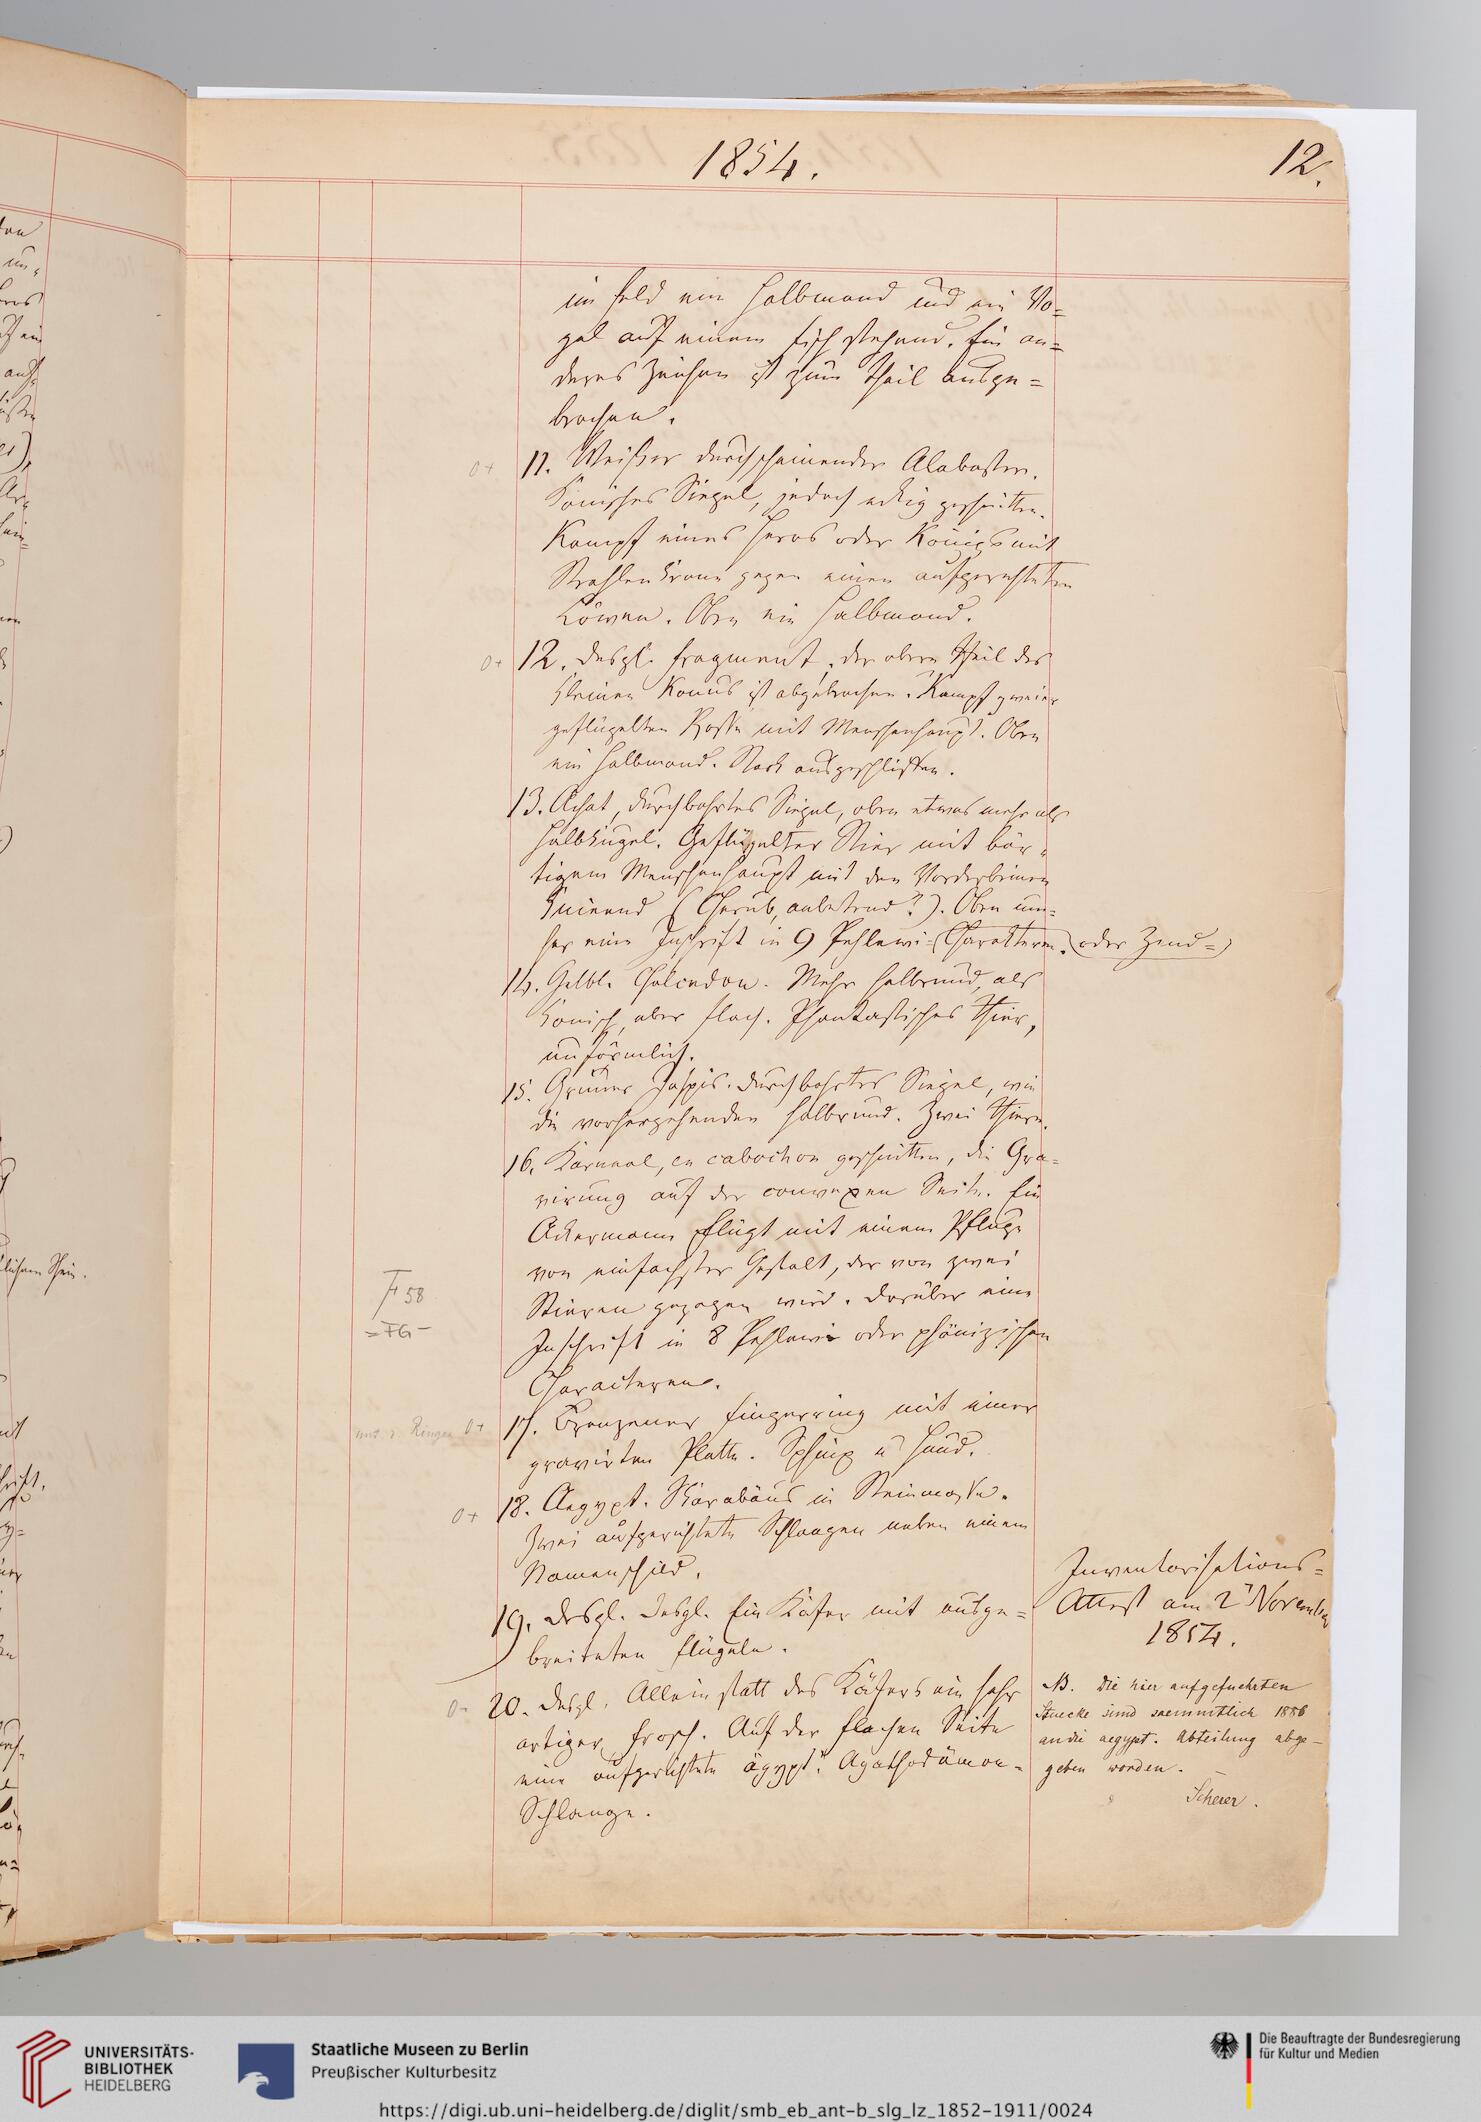 1854.
12.
im Feld ein Halbmond und ein Vo=
gel auf einem Fisch stehend. Ein an=
deres Zeichen ist zum Theil ausge=
brochen.
0+ 11. Weißer durchscheinender Alabaster.
Konisches Siegel, jedoch eckig geschnitten.
Kampf eines Heros oder Königs mit
Strahlenkrone gegen einen aufgerichteten
Löwen. Oben ein Halbmond.
0+ 12. Desgl. Fragment, der obere Theil des
kleinen Konus ist abgebrochen. Kampf zweier
geflügelten Rosse mit Menschenhaupt. Oben
ein Halbmond. Stark ausgeschliffen.
13. Achat, durchbohrtes Siegel, oben etwas mehr als
Halbkugel. Geflügelter Stier mit bär=
tigem Menschenhaupt mit den Vorderbeinen
knieend (Cherub, anbetend?). Oben um=
her eine Inschrift in 9 Pehlewi=(Charakteren. oder Zend=)
14. Gelbl. Chalcedon. Mehr halbrund, als
konisch, aber flach. Phantastisches Thier,
unförmlich.
15. Grüner Jaspis. Durchbohrtes Siegel, wie
die vorhergehenden halbrund. Zwei Thiere.
16. Karneol, en cabochon geschnitten, die Gra=
virung auf der convexen Seite. Ein
Ackermann pflügt mit einem Pfluge
von einfachster Gestalt, der von zwei
Stieren gezogen wird. Darüber eine
Inschrift in 8 Pehlewi oder phönizischen
Characteren.
F 58
=FG-
unt. d. Ringen 0+ 17. Bronzener Fingerring mit einer
gravirten Platte. Sphinx u Hund.
0+ 18. Aegypt. Skarabäus in Steinmasse.
Zwei aufgerichtete Schlangen neben einem
Namenschild.
19. Desgl. Desgl. Ein Käfer mit ausge=
breiteten Flügeln.
0- 20. Desgl. Allein statt des Käfers ein sehr
artiger Frosch. Auf der flachen Seite
eine aufgerichtete ägypt. Agathodämon=
Schlange.
Inventarisations=
Attest am 2t November
1854.
NB. Die hier aufgefuehrten
Stuecke sind saemmtlich 1886
an die aegypt. Abteilung abge-
geben worden.
Scherer.
lichem Stein.
UNIVERSITÄTS-
BIBLIOTHEK
HEIDELBERG
Staatliche Museen zu Berlin
Preußischer Kulturbesitz
Die Beauftragte der Bundesregierung
für Kultur und Medien
https://digi.ub.uni-heidelberg.de/diglit/smb_eb_ant-b_slg_lz_1852-1911/0024